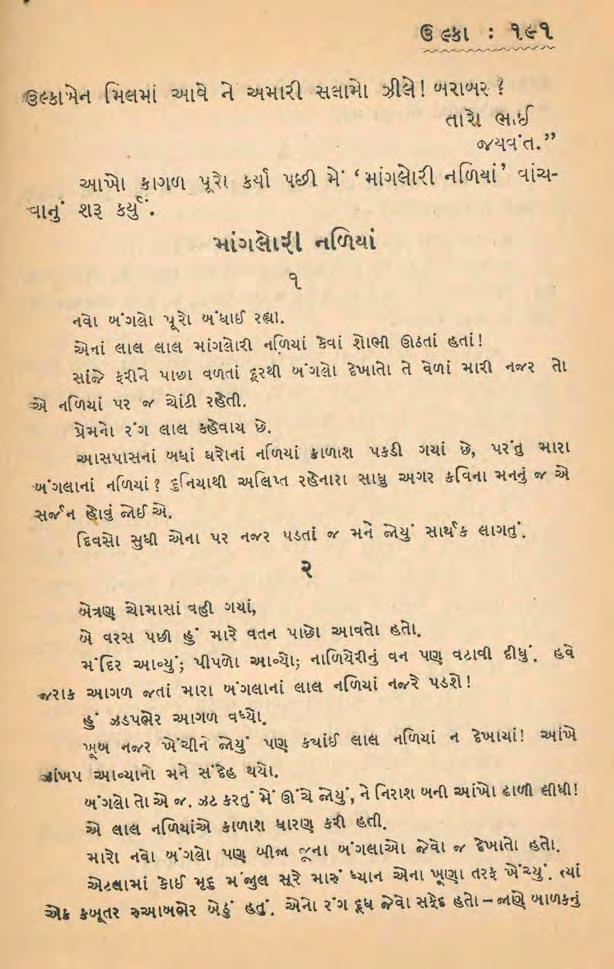 ઉલ્કા : ૧૯૧
ઉલ્કાબેન મિલમાં આવે ને અમારી સલામો ઝીલે! બરાબર ?
તારો ભાઈ
જયવંત.”
આખો કાગળ પૂરો કર્યા પછી મેં ‘માંગલોરી નળિયાં’ વાંચ-
વાનું શરૂ કર્યું.
માંગલોરી નળિયાં
૧
નવો બંગલો પૂરો બંધાઈ રહ્યા.
એનાં લાલ લાલ માંગલોરી નળિયાં કેવાં શોભી ઊઠતાં હતાં!
સાંજે ફરીને પાછા વળતાં દૂરથી બંગલો દેખાતો તે વેળાં મારી નજર તો
એ નળિયાં પર જ ચોંટી રહેતી.
પ્રેમનો રંગ લાલ કહેવાય છે.
આસપાસનાં બધાં ઘરોનાં નળિયાં કાળાશ પકડી ગયાં છે, પરંતુ મારા
બંગલાનાં નળિયાં? દુનિયાથી અલિપ્ત રહેનારા સાધુ અગર કવિના મનનું જ એ
સર્જન હોવું જોઈએ.
દિવસો સુધી એના પર નજર પડતાં જ મને જોયું સાર્થક લાગતું.
૨
બેત્રણ ચોમાસાં વહી ગયાં,
બે વરસ પછી હું મારે વતન પાછો આવતો હતો.
મંદિર આવ્યું; પીપળો આવ્યો; નાળિયેરીનું વન પણ વટાવી દીધું. હવે
જરાક આગળ જતાં મારા બંગલાનાં લાલ નળિયાં નજરે પડશે!
હું ઝડપભેર આગળ વધ્યો.
ખૂબ નજર ખેંચીને જોયું પણ ક્યાંઈ લાલ નળિયાં ન દેખાયાં! આંખે
ઝાંખપ આવ્યાનો મને સંદેહ થયો.
બંગલો તો એ જ. ઝટ કરતું મેં ઊંચે જોયું, ને નિરાશ બની આંખો ઢાળી લીધી!
એ લાલ નળિયાંએ કાળાશ ધારણ કરી હતી.
મારો નવો બંગલો પણ બીજા જૂના બંગલાઓ જેવો જ દેખાતો હતો.
એટલામાં કોઈ મૃદુ મંજુલ સૂરે મારું ધ્યાન એના ખૂણા તરફ ખેંચ્યું. ત્યાં
એક કબૂતર રુઆબભેર બેઠું હતું. એનો રંગ દૂધ જેવો સફેદ હતો – જાણે બાળકનું